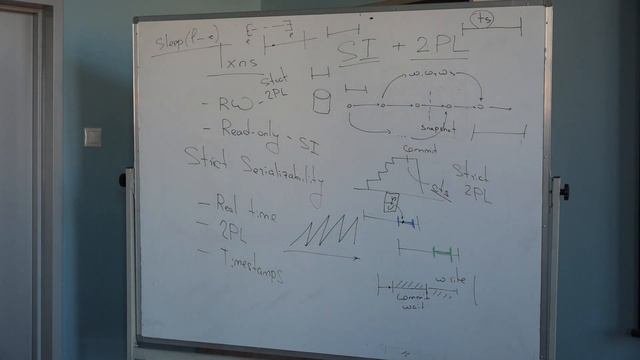 Sleep(l-e)
ts
SI + 2PL
Txns
Strict
- RW - 2PL
- Read-only - SI
Strict Serializability
- Real time
- 2PL
- Timestamps
w₁ w₂ w₃
snapshot
...
commit
Strict
2PL
ts
write
commit
wait